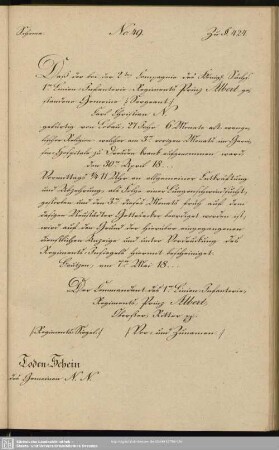 Schema No: 49. Zu § 424
Daß der bei der 2ten Compagnie des Königl. Sächs.
1ten Linien-Infanterie-Regiments Prinz Albert ge-
standene Gemeine (Sergeant)
Carl Christian N.
gebürtig von Löbau, 21 Jahr 6 Monate alt, evange-
lischer Religion, welcher am 1ten vorigen Monats im Garni-
son-Hospitale zu Budissin krank aufgenommen ward
den 30ten April 18..
Vormittags 3/4 11 Uhr an allgemeiner Entkräftung
und Abzehrung, als Folge einer Lungenschwindsucht,
gestorben und den 3ten dieses Monats früh auf dem
Gottesacker beerdigt worden ist,
wird auf den Grund der hierüber eingegangenen
dienstlichen Anzeige und unter Vordruckung des
Regiments-Insiegels hiermit bescheiniget.
Budissin, am 7ten Mai 18..
Der Commandant des 1ten Linien-Infanterie-
Regiments Prinz Albert,
Oberster, Ritter pp.
(Regiments-Siegel.) (Vor- und Zunamen)
Toden-Schein
des Gemeinen N. N.